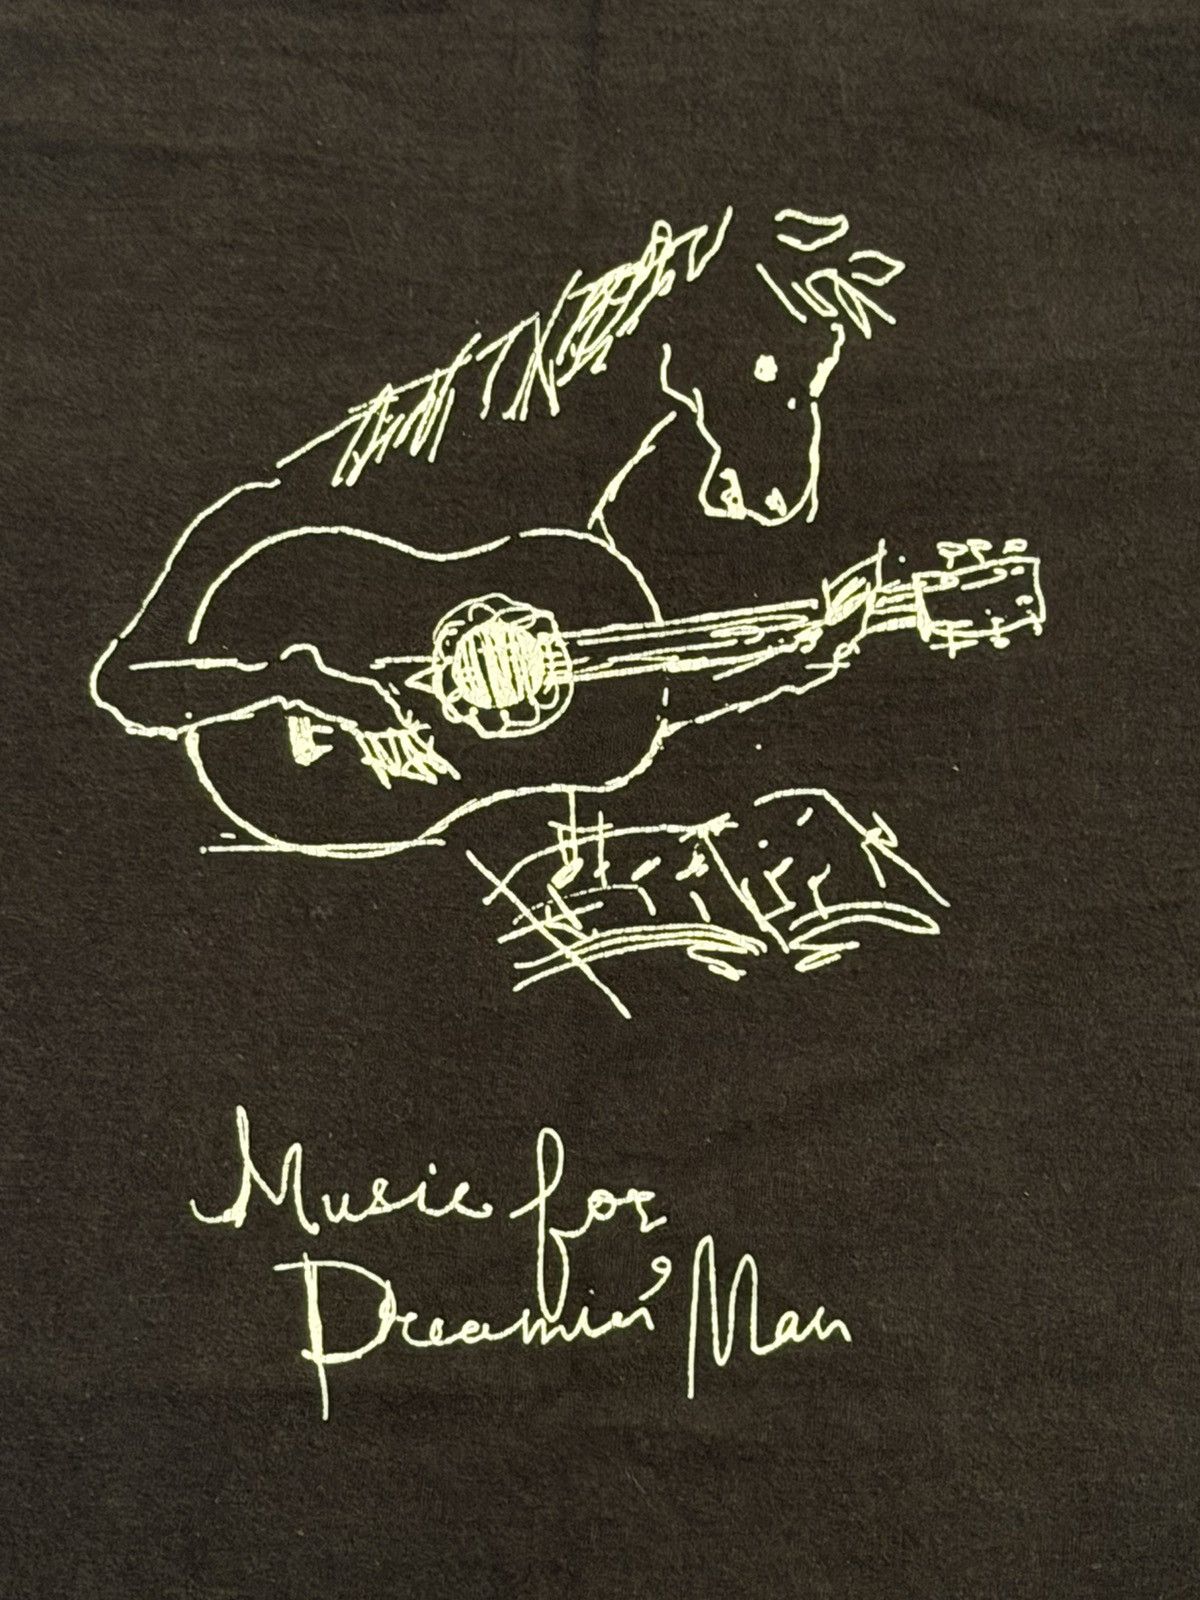 Music for
Dreamin' Man